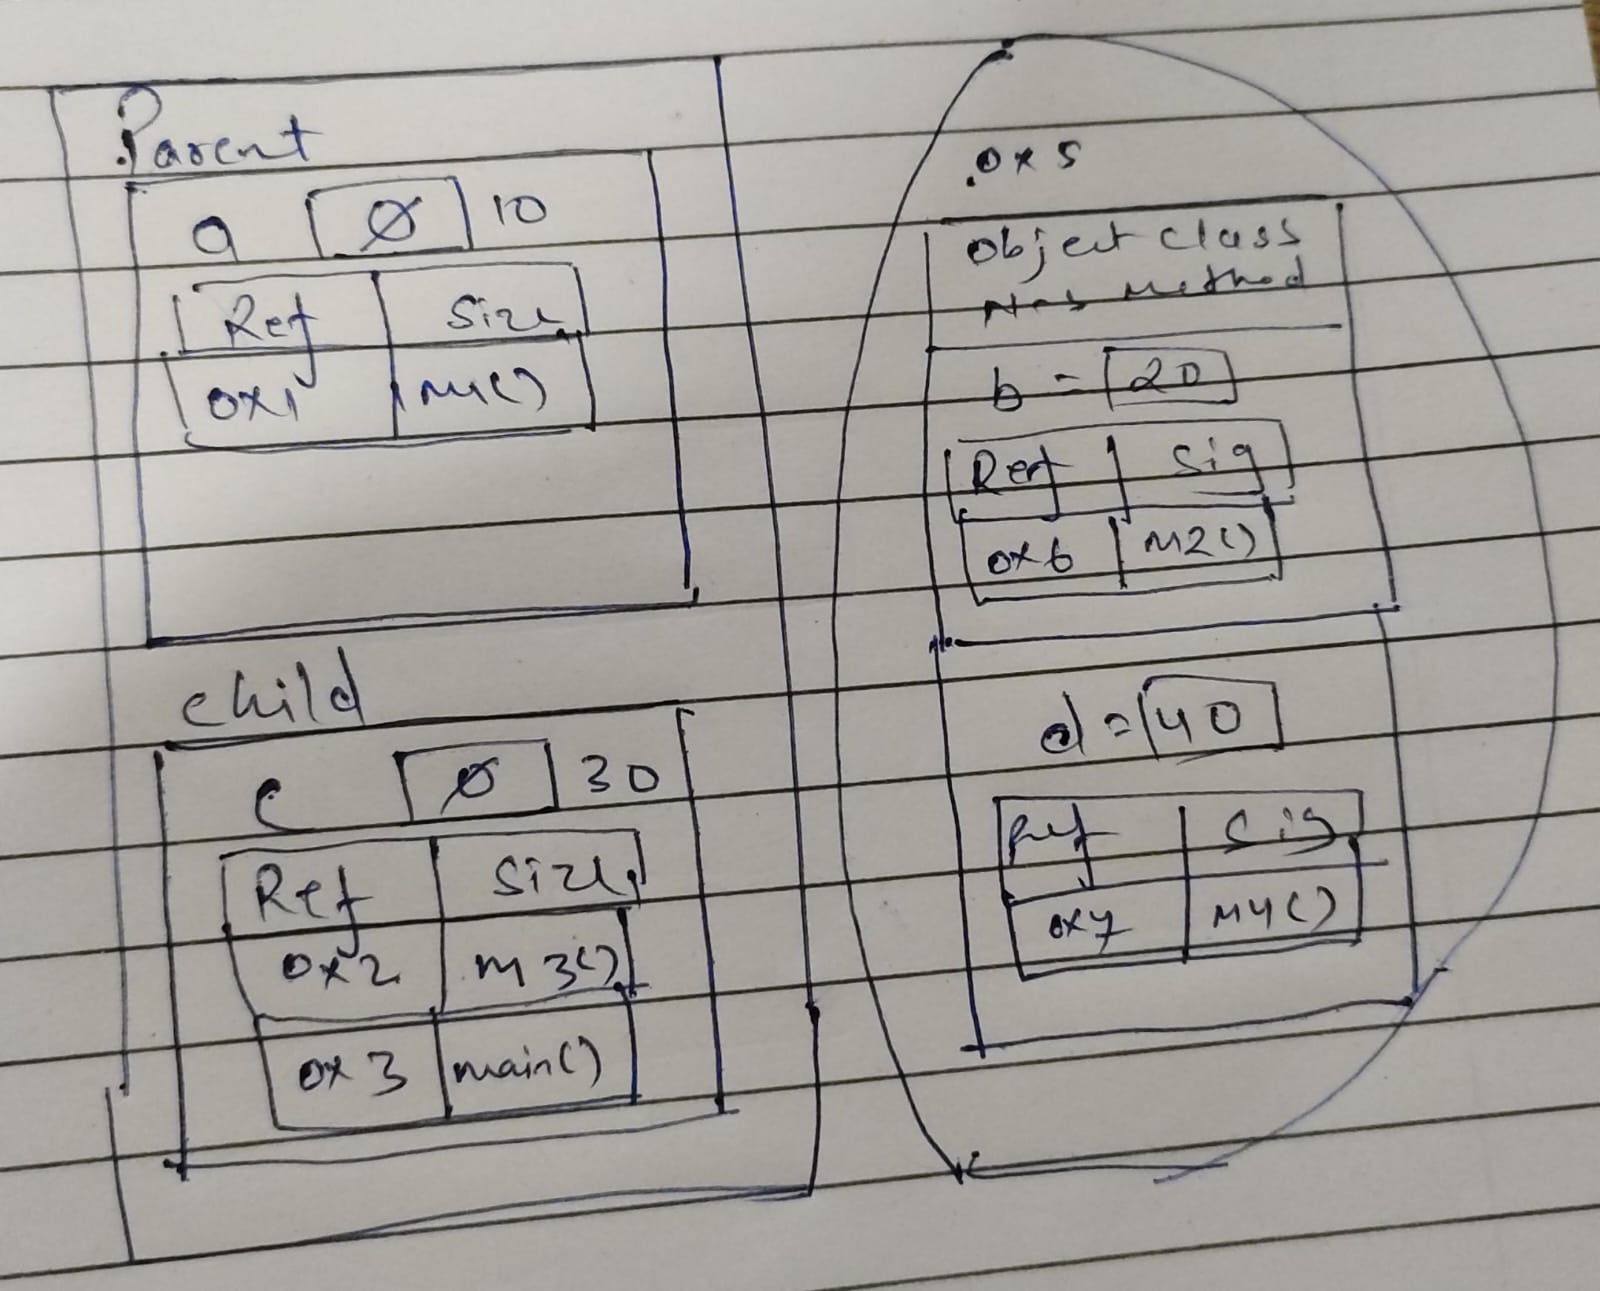 Parent
a 0 10
Ref Size
0x1 M1()
child
c 0 30
Ref Size
0x2 m3()
0x3 main()
0x5
Object class
Method
b = 20
Ref Sig
0x6 M2()
d = 40
Ref Sig
0x7 M4()